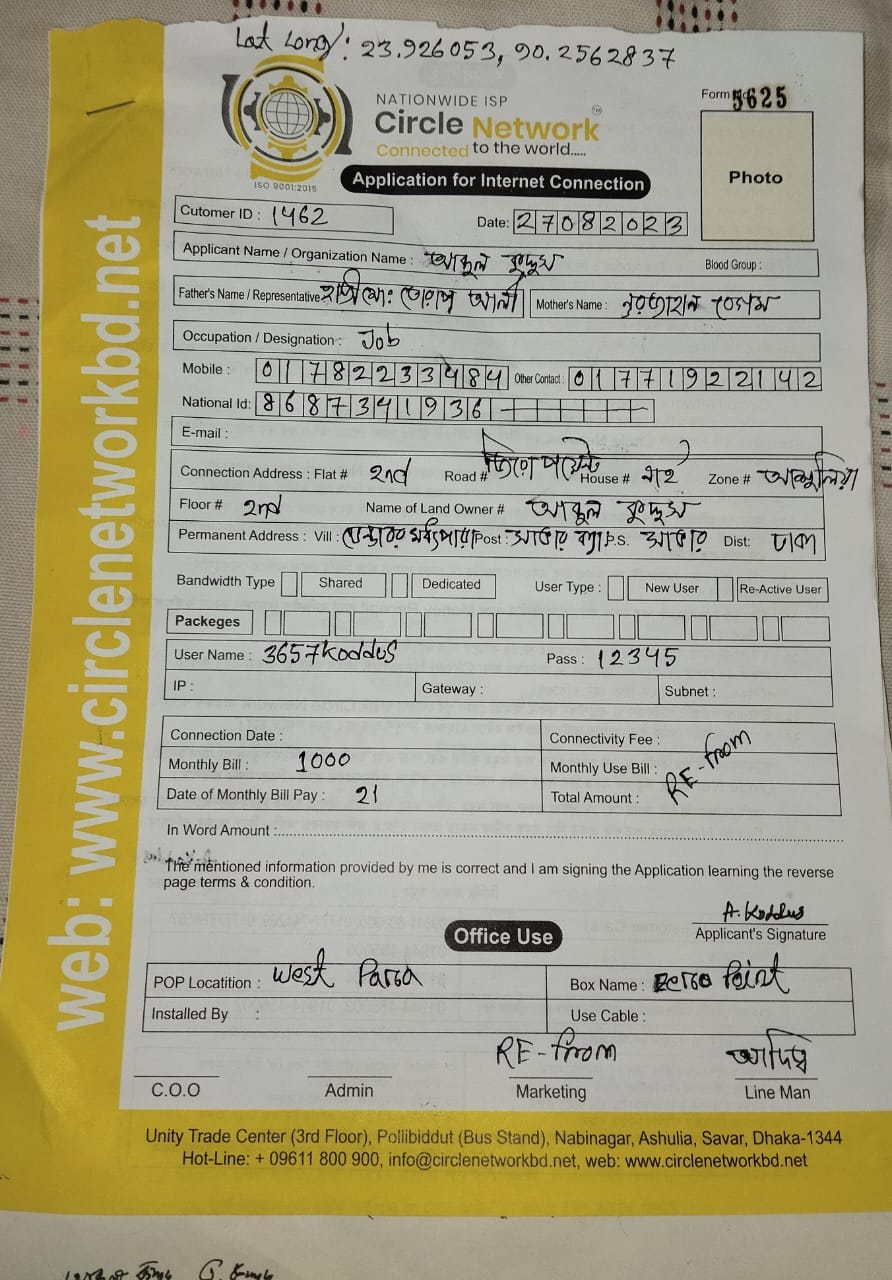 Lat Long: 23.926053, 90.2562837
NATIONWIDE ISP
Form 5625
Circle Network
Connected to the world.....
ISO 9001:2015
Photo
Application for Internet Connection
Cutomer ID : 1462
Date: 27082023
Applicant Name / Organization Name : আব্দুল কুদ্দুস
Blood Group :
Father's Name / Representative আলী
Mother's Name : নুরজাহান বেগম
Occupation / Designation : Job
Mobile : 01782233484 Other Contact : 01771922142
National Id: 8687341936
E-mail :
Connection Address : Flat # 2nd Road # জিরো পয়েন্ট House # Zone # আশুলিয়া
Floor # 2nd Name of Land Owner # আব্দুল কুদ্দুস
Permanent Address : Vill : Post : সাভার P.S. সাভার Dist: ঢাকা
Bandwidth Type Shared Dedicated User Type : New User Re-Active User
Packeges
User Name : 3657koddus Pass : 12345
IP : Gateway : Subnet :
Connection Date : Connectivity Fee :
Monthly Bill : 1000 Monthly Use Bill : RE-from
Date of Monthly Bill Pay : 21 Total Amount :
In Word Amount :
The mentioned information provided by me is correct and I am signing the Application learning the reverse
page terms & condition.
A. Koddus
Applicant's Signature
Office Use
POP Locatition : West Parca Box Name : Zeroo Point
Installed By : Use Cable :
RE-from
C.O.O Admin Marketing Line Man
Unity Trade Center (3rd Floor), Pollibiddut (Bus Stand), Nabinagar, Ashulia, Savar, Dhaka-1344
Hot-Line: + 09611 800 900, info@circlenetworkbd.net, web: www.circlenetworkbd.net
web: www.circlenetworkbd.net